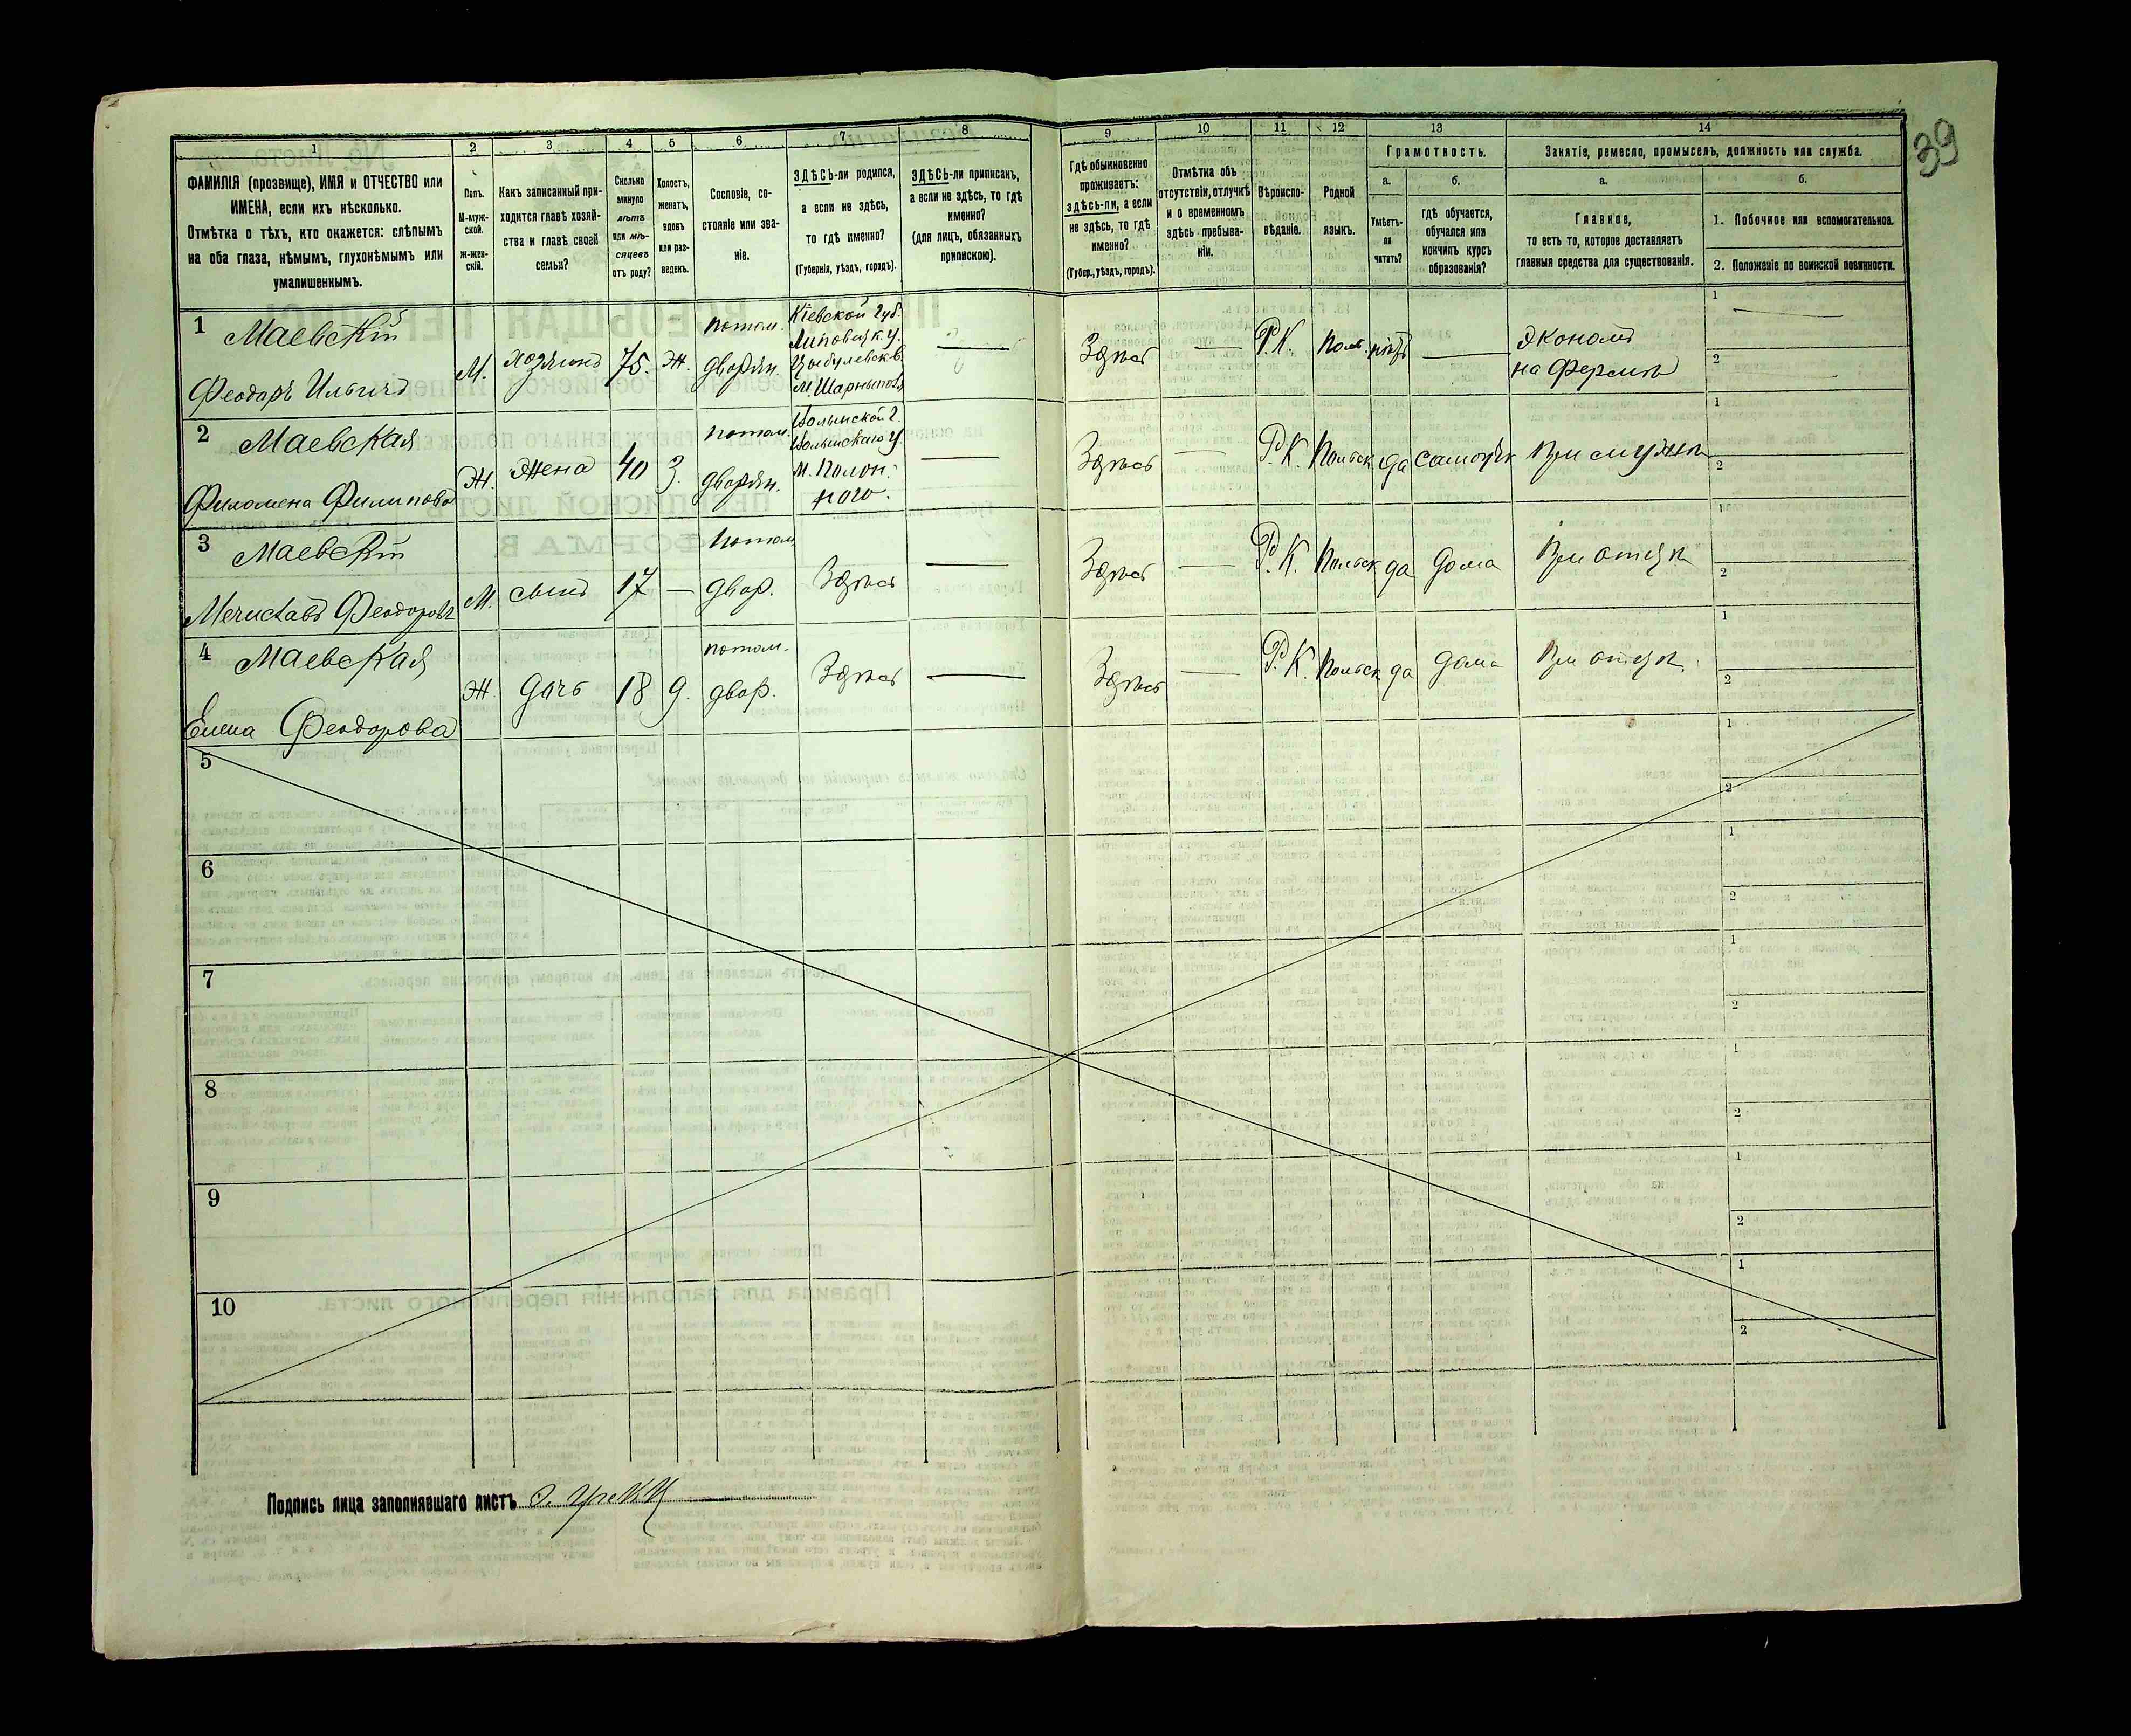 39
1 2 3 4 5 6 7 8 9 10 11 12 13 14
ФАМИЛІЯ (прозвище), ИМЯ и ОТЧЕСТВО или
ИМЕНА, если ихъ нѣсколько.
Отмѣтка о тѣхъ, кто окажется: слѣпымъ
на оба глаза, нѣмымъ, глухонѣмымъ или
умалишеннымъ.
Полъ.
М-муж-
ской.
Ж-жен-
скій.
Какъ записанный при-
ходится главѣ хозяй-
ства и главѣ своей
семьи?
Сколько
минуло
лѣтъ
или мѣ-
сяцевъ
отъ роду?
Холостъ,
женатъ,
вдовъ
или раз-
веденъ.
Сословіе, со-
стояніе или зва-
ніе.
ЗДѢСЬ-ли родился,
а если не здѣсь,
то гдѣ именно?
(Губернія, уѣздъ, городъ).
ЗДѢСЬ-ли приписанъ,
а если не здѣсь, то гдѣ
именно?
(для лицъ, обязанныхъ
припискою).
Гдѣ обыкновенно
проживаетъ:
здѣсь-ли, а если
не здѣсь, то гдѣ
именно?
(Губер., уѣздъ, городъ).
Отмѣтка объ
отсутствіи, отлучкѣ
и о временномъ
здѣсь пребыва-
ніи.
Вѣроиспо-
вѣданіе.
Родной
языкъ.
Грамотность.
а.
Умѣетъ-
ли
читать?
б.
гдѣ обучается,
обучался или
кончилъ курсъ
образованія?
Занятіе, ремесло, промыселъ, должность или служба.
а.
Главное,
то есть то, которое доставляетъ
главныя средства для существованія.
б.
1. Побочное или вспомогательное.
2. Положеніе по воинской повинности.
1 Маевскій
Феодоръ Ильичъ
М. хозяинъ 75. Ж.
потом.
дворян.
Кіевской губ.
Липовецк. у.
Цыбулевск. в.
Здѣсь — Р.К. Поль. нѣтъ —
Экономъ
на Фермѣ
1
2
2 Маевская
Филомена Филипова
Ж. Жена 40 З.
потом.
дворян.
Волынской г.
Волынскаго у.
М. Полон-
ного.
— Здѣсь — Р.К. Польск да самоучк При мужѣ
1
2
3 Маевскій
Мечиславъ Феодоровъ
М. сынъ 17 —
потом.
двор.
Здѣсь — Здѣсь — Р.К. Польск да дома При отцѣ
1
2
4 Маевская
Елена Феодорова
Ж. дочь 18 д.
потом.
двор.
Здѣсь — Здѣсь — Р.К. Польск да дома При отцѣ
1
2
5
1
2
6
1
2
7
1
2
8
1
2
9
1
2
10
1
2
Подпись лица заполнявшаго листъ